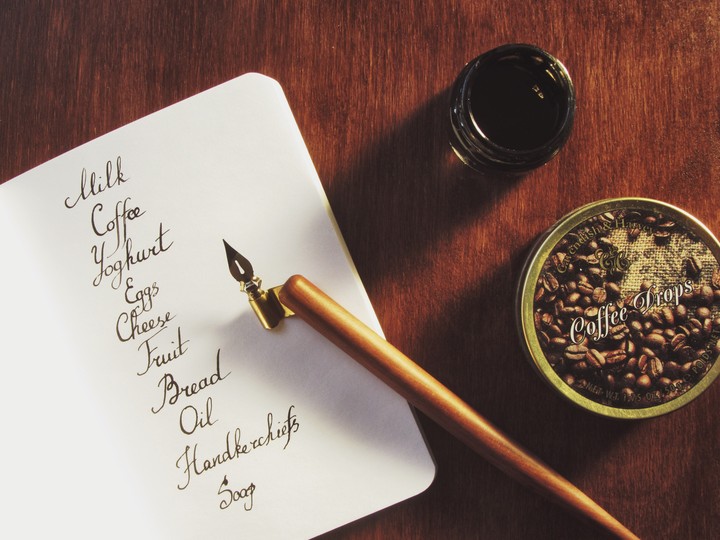 Milk
Coffee
Yoghurt
Eggs
Cheese
Fruit
Bread
Oil
Handkerchiefs
Soap
Cavendish & Harvey
Coffee Drops